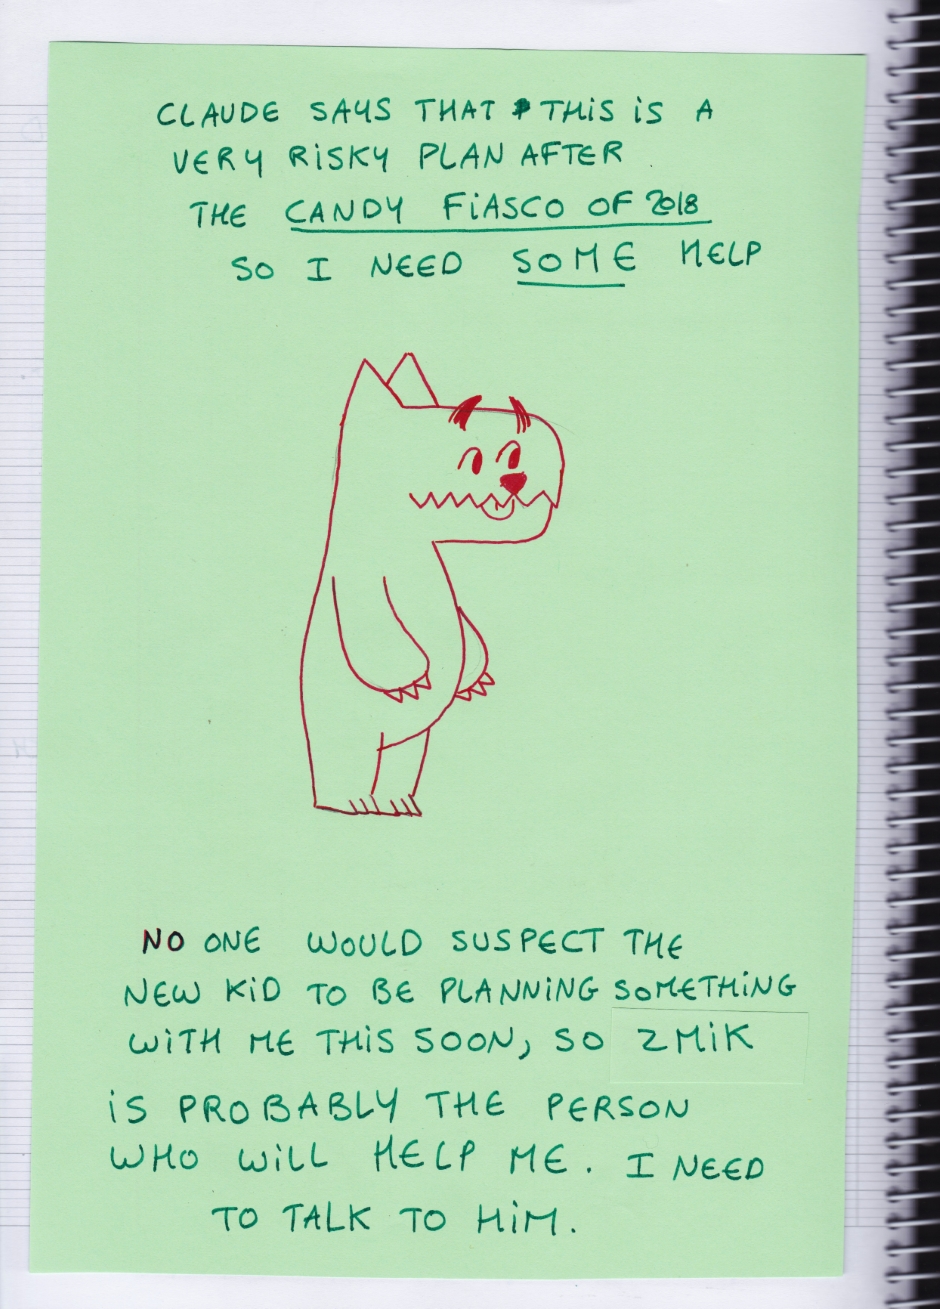 CLAUDE SAYS THAT THIS IS A
VERY RISKY PLAN AFTER
THE CANDY FIASCO OF 2018
SO I NEED SOME HELP
NO ONE WOULD SUSPECT THE
NEW KID TO BE PLANNING SOMETHING
WITH ME THIS SOON, SO ZMIK
IS PROBABLY THE PERSON
WHO WILL HELP ME. I NEED
TO TALK TO HIM.